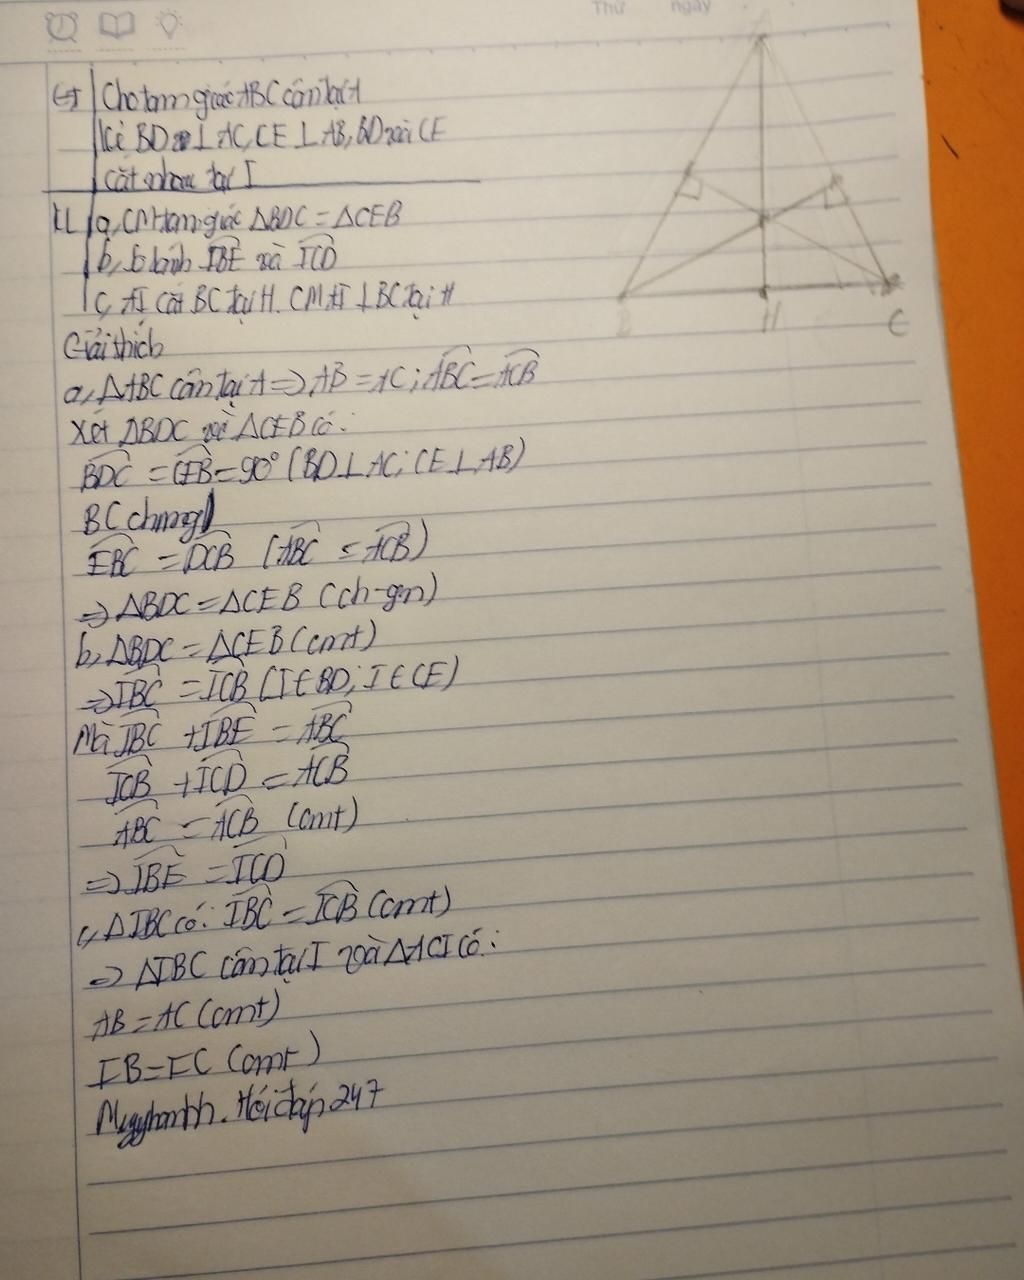 Thứ ngày
GT Cho tam giác ABC cân tại A
Kẻ BD ⊥ AC, CE ⊥ AB, BD và CE
cắt nhau tại I
KL a, CM tam giác ΔBDC = ΔCEB
b, S. sánh IBE và ICD
c, AI cắt BC tại H. CM AI ⊥ BC tại H
A
B
H
C
Giải thích
a, ΔABC cân tại A => AB = AC; ABC = ACB
Xét ΔBDC và ΔCEB có:
BDC = CEB = 90° (BD ⊥ AC; CE ⊥ AB)
BC chung
EBC = DCB (ABC = ACB)
=> ΔBDC = ΔCEB (ch-gn)
b, ΔBDC = ΔCEB (cmt)
=> IBC = ICB (I ∈ BD; I ∈ CE)
Mà IBC + IBE = ABC
ICB + ICD = ACB
ABC = ACB (cmt)
=> IBE = ICD
c, ΔIBC có: IBC = ICB (cmt)
=> ΔIBC cân tại I và ΔACI có:
AB = AC (cmt)
IB = IC (cmt)
Hỏi đáp 247